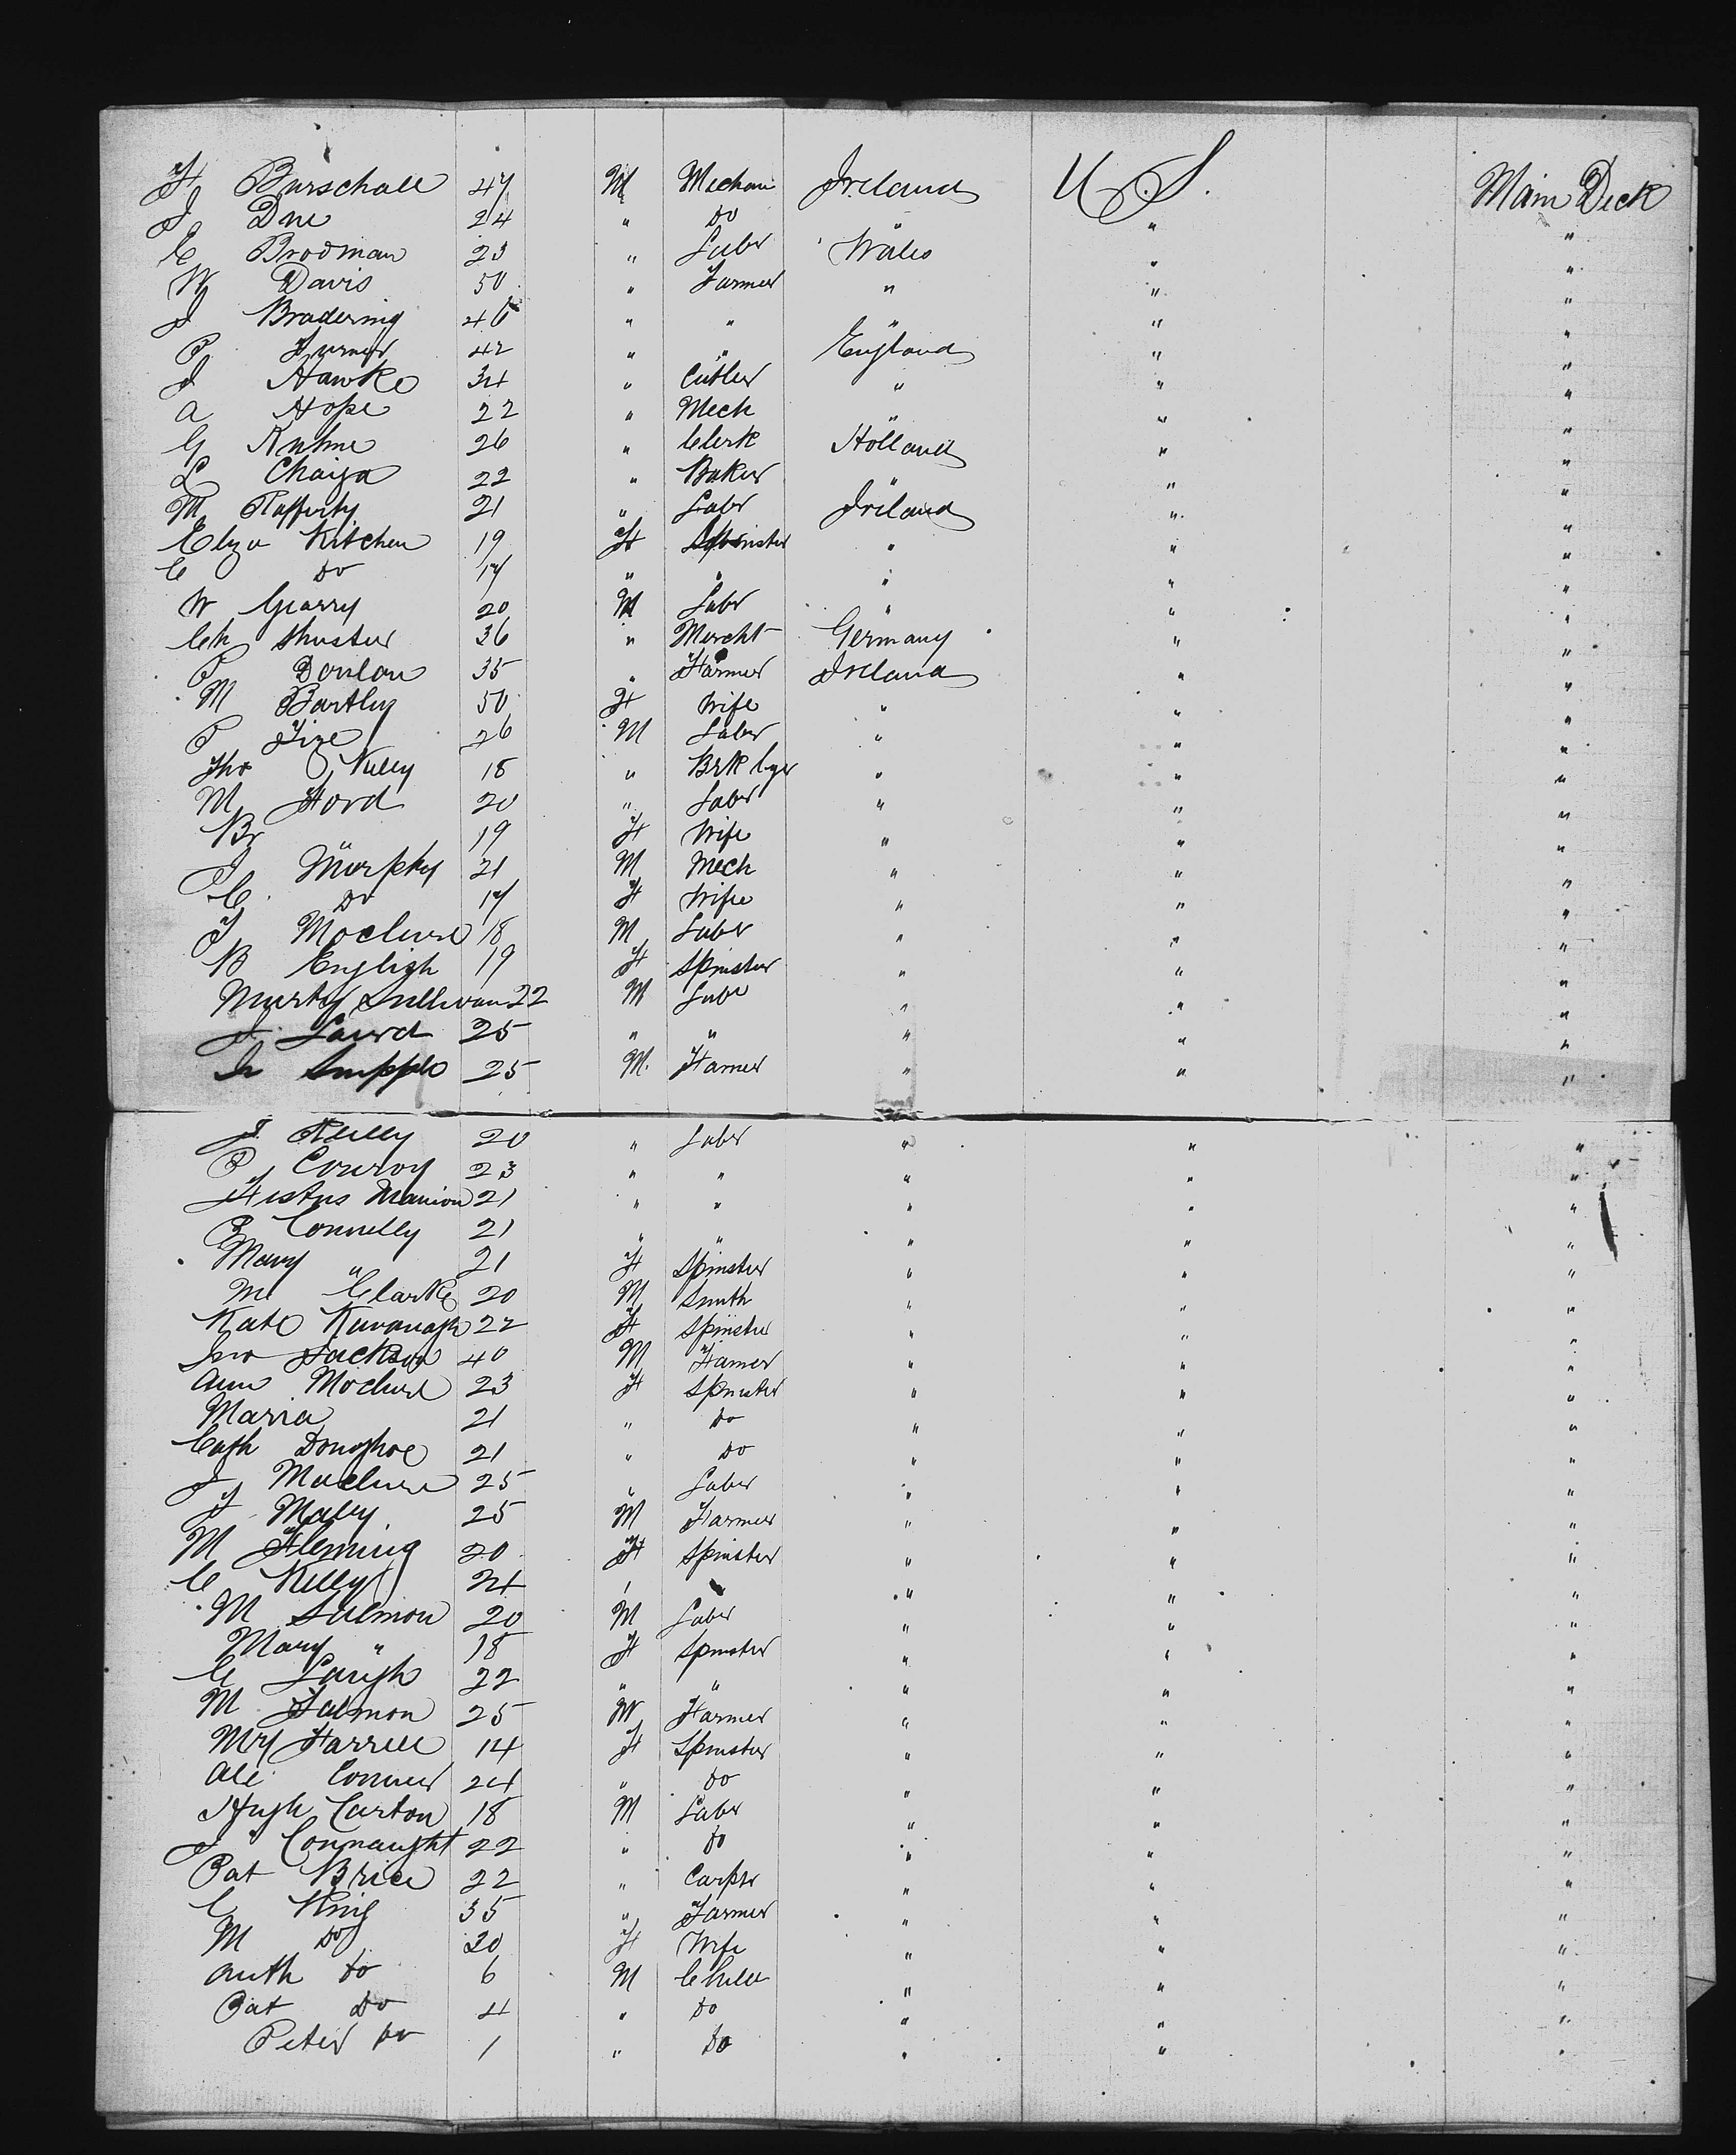 F Burschall 47 M Mechan Ireland U.S. Main Deck
J Dne 24 " Do " " "
C Brodman 23 " Labr Wales " "
W Davis 50 " Farmer " " "
J Bradering 46 " " " " "
P Turner 42 " " England " "
J Hawke 34 " Cutler " " "
A Hope 22 " Mech " " "
G Kuhne 26 " Clerk Holland " "
L Chaiza 22 " Baker " " "
M Rafferty 21 " Labr Ireland " "
Eliza Kitchen 19 F Spinster " " "
C Do 17 " " " " "
W Gearry 20 M Labr " " "
Ch Shuster 36 " Mercht Germany " "
P Donlon 35 " Farmer Ireland " "
M Bartley 50 F Wife " " "
P 26 M Labr " " "
Thos Kelly 18 " Brk lyer " " "
M Ford 20 " Labr " " "
Br 19 F Wife " " "
J Murphy 21 M Mech " " "
C Do 17 F Wife " " "
T Moclure 18 M Labr " " "
B English 19 F Spinster " " "
Murty Sullivan 22 M Labr " " "
J Laird 25 " " " " "
Supple 25 M. Farmer " " "
J Reilly 20 " Labr " " "
P Conroy 23 " " " " "
Festus Manion 21 " " " " "
P Connelly 21 " " " " "
Mary " 21 F Spinster " " "
M Clarke 20 M Smith " " "
Kate Kavanagh 22 F Spinster " " "
Jno Jackson 40 M Farmer " " "
Ann Moclure 23 F Spinster " " "
Maria 21 " Do " " "
Cath Donoghoe 21 " Do " " "
J Maclure 25 " Labr " " "
T Maley 25 M Farmer " " "
M Fleming 20 F Spinster " " "
C Kelly 24 " " " " "
M Salmon 20 M Labr " " "
Mary " 18 F Spinster " " "
C Laugh 22 " " " " "
M Salmon 25 M Farmer " " "
Mry Farrell 14 F Spinster " " "
Ale Conner 24 " Do " " "
Hugh Carton 18 M Labr " " "
J Connaught 22 " Do " " "
Pat Brice 22 " Carptr " " "
C King 35 " Farmer " " "
M Do 30 F Wife " " "
Anth Do 6 M Child " " "
Pat Do 4 " Do " " "
Peter Do 1 " Do " " "